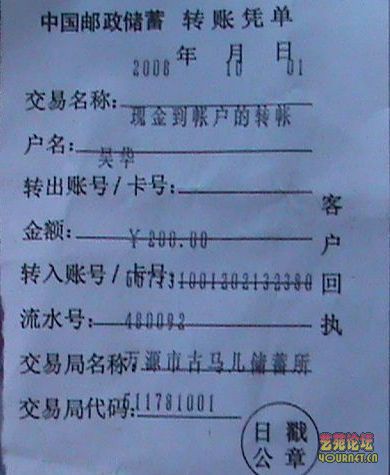 中国邮政储蓄 转账凭单
年 月 日
2008 10 01
交易名称:现金到帐户的转帐
户名:吴华
转出账号/卡号:
金额:¥200.00
转入账号/卡号:
流水号:480092
交易局名称:万源市古马儿储蓄所
交易局代码:511781001
客户回执
日戳
公章
艺苑论坛
YOURNET.CN